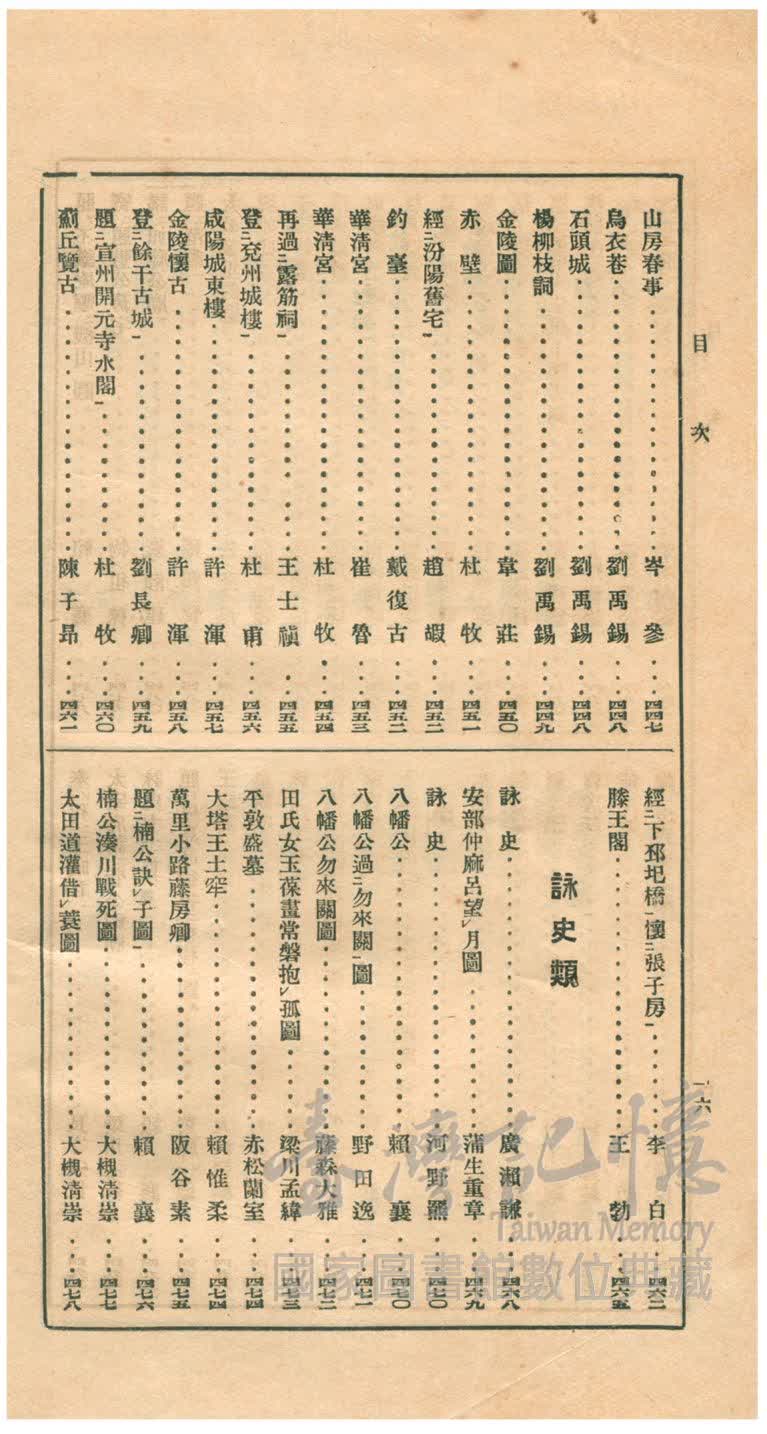 目次
山房春事………岑參…四四七
烏衣巷………劉禹錫…四四八
石頭城………劉禹錫…四四八
楊柳枝詞………劉禹錫…四四九
金陵圖………韋莊…四五〇
赤壁………杜牧…四五一
經㆓汾陽舊宅㆒………趙嘏…四五二
釣臺………戴復古…四五二
華淸宮………崔魯…四五三
華淸宮………杜牧…四五四
再過㆓露筋祠㆒………王士禛…四五五
登㆓兗州城樓㆒………杜甫…四五六
咸陽城東樓………許渾…四五七
金陵懷古………許渾…四五八
登㆓餘干古城㆒………劉長卿…四五九
題㆓宣州開元寺水閣㆒………杜牧…四六〇
薊丘覽古………陳子昂…四六一
經㆓下邳圯橋㆒懷㆓張子房㆒………李白…四六二
滕王閣………王勃…四六五
詠史類
詠史………廣瀨謙…四六八
安部仲麻呂望㆑月圖………蒲生重章…四六九
詠史………河野羆…四七〇
八幡公………賴襄…四七〇
八幡公過㆓勿來關㆒圖………野田逸…四七一
八幡公勿來關圖………藤森大雅…四七二
田氏女玉葆畫常磐抱㆑孤圖………梁川孟緯…四七三
平敦盛墓………赤松蘭室…四七四
大塔王土窂………賴惟柔…四七四
萬里小路藤房卿………阪谷素…四七五
題㆓楠公訣㆑子圖㆒………賴襄…四七六
楠公湊川戰死圖………大槻淸崇…四七七
太田道灌借㆑蓑圖………大槻淸崇…四七八
一六
臺灣記憶
Taiwan Memory
國家圖書館數位典藏